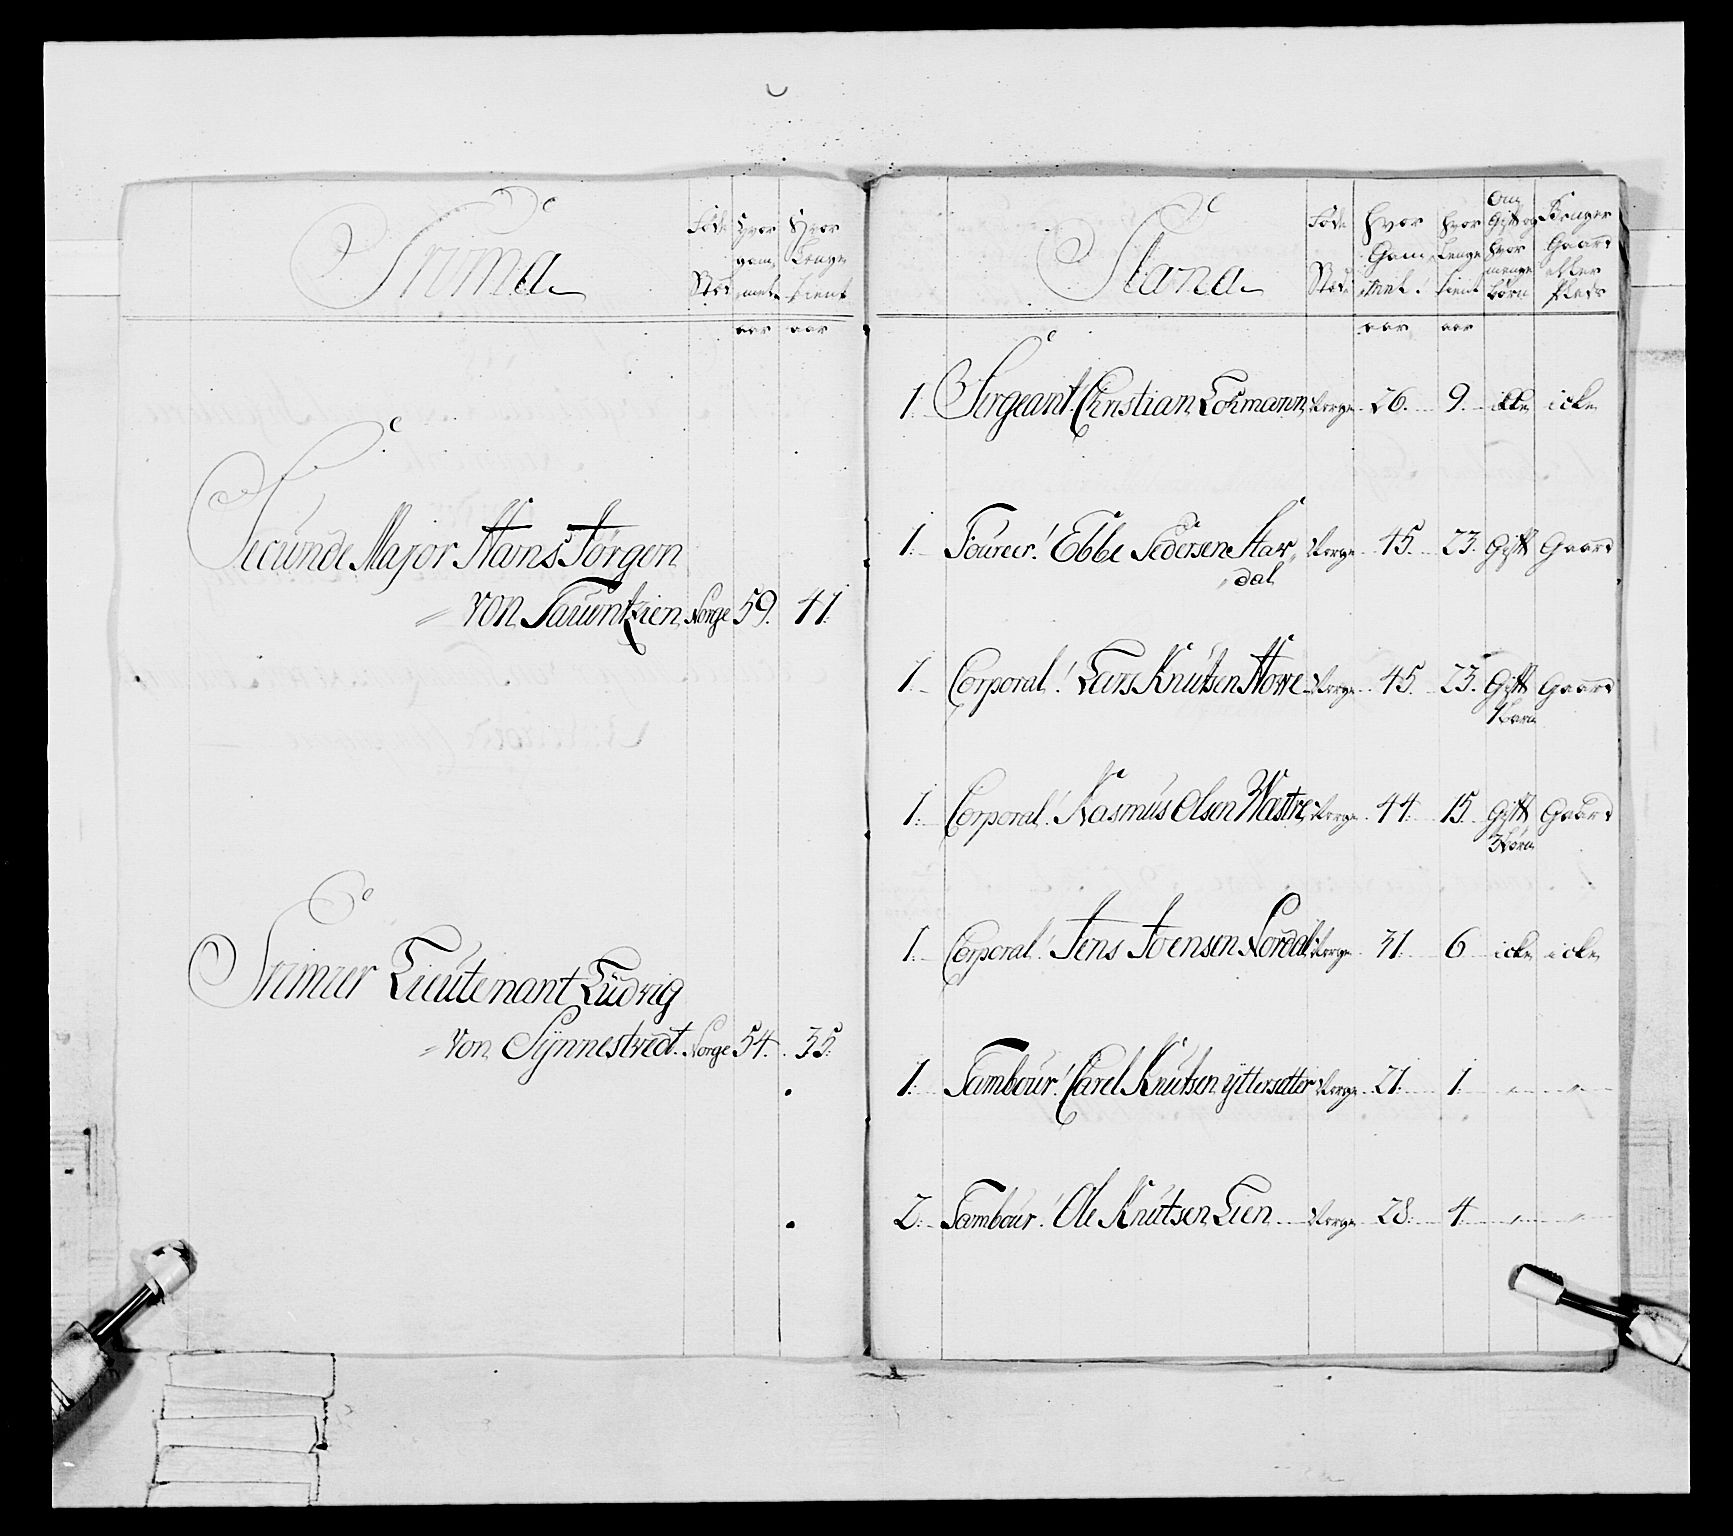 Prima
Føde Sted
Hvor gammel
Hvor Lenge tient
aar aar
Secunde Major Hans Jørgen
von Tauentzien Norge 59. 41.
Primier Lieutenant Ludvig
von Synnestvedt. Norge 54. 35.
Plana
Føde Sted
Hvor Gammel
Hvor Lenge tient
Om Gift og hvor mange børn
Bruger Gaard eller Plads
aar aar
1. Sergeant Christian Lohmann Norge 26. 9. icke icke
1. Foureer: Ebbe Pedersen Har Norge 45. 23. Gift Gaard
dal
1. Corporal: Lars Knutsen Howe Norge 45. 23. Gift Gaard
1 barn
1. Corporal: Rasmus Olsen Wæstre Norge 44. 15. Gift Gaard
3 børn
1. Corporal: Jens Joensen Nordal Norge 31. 6 icke icke
1. Tambour: Carel Knutsen yttersætter Norge 21. 1. " "
2. Tambour: Ole Knutsen Lien Norge 28. 4 " "